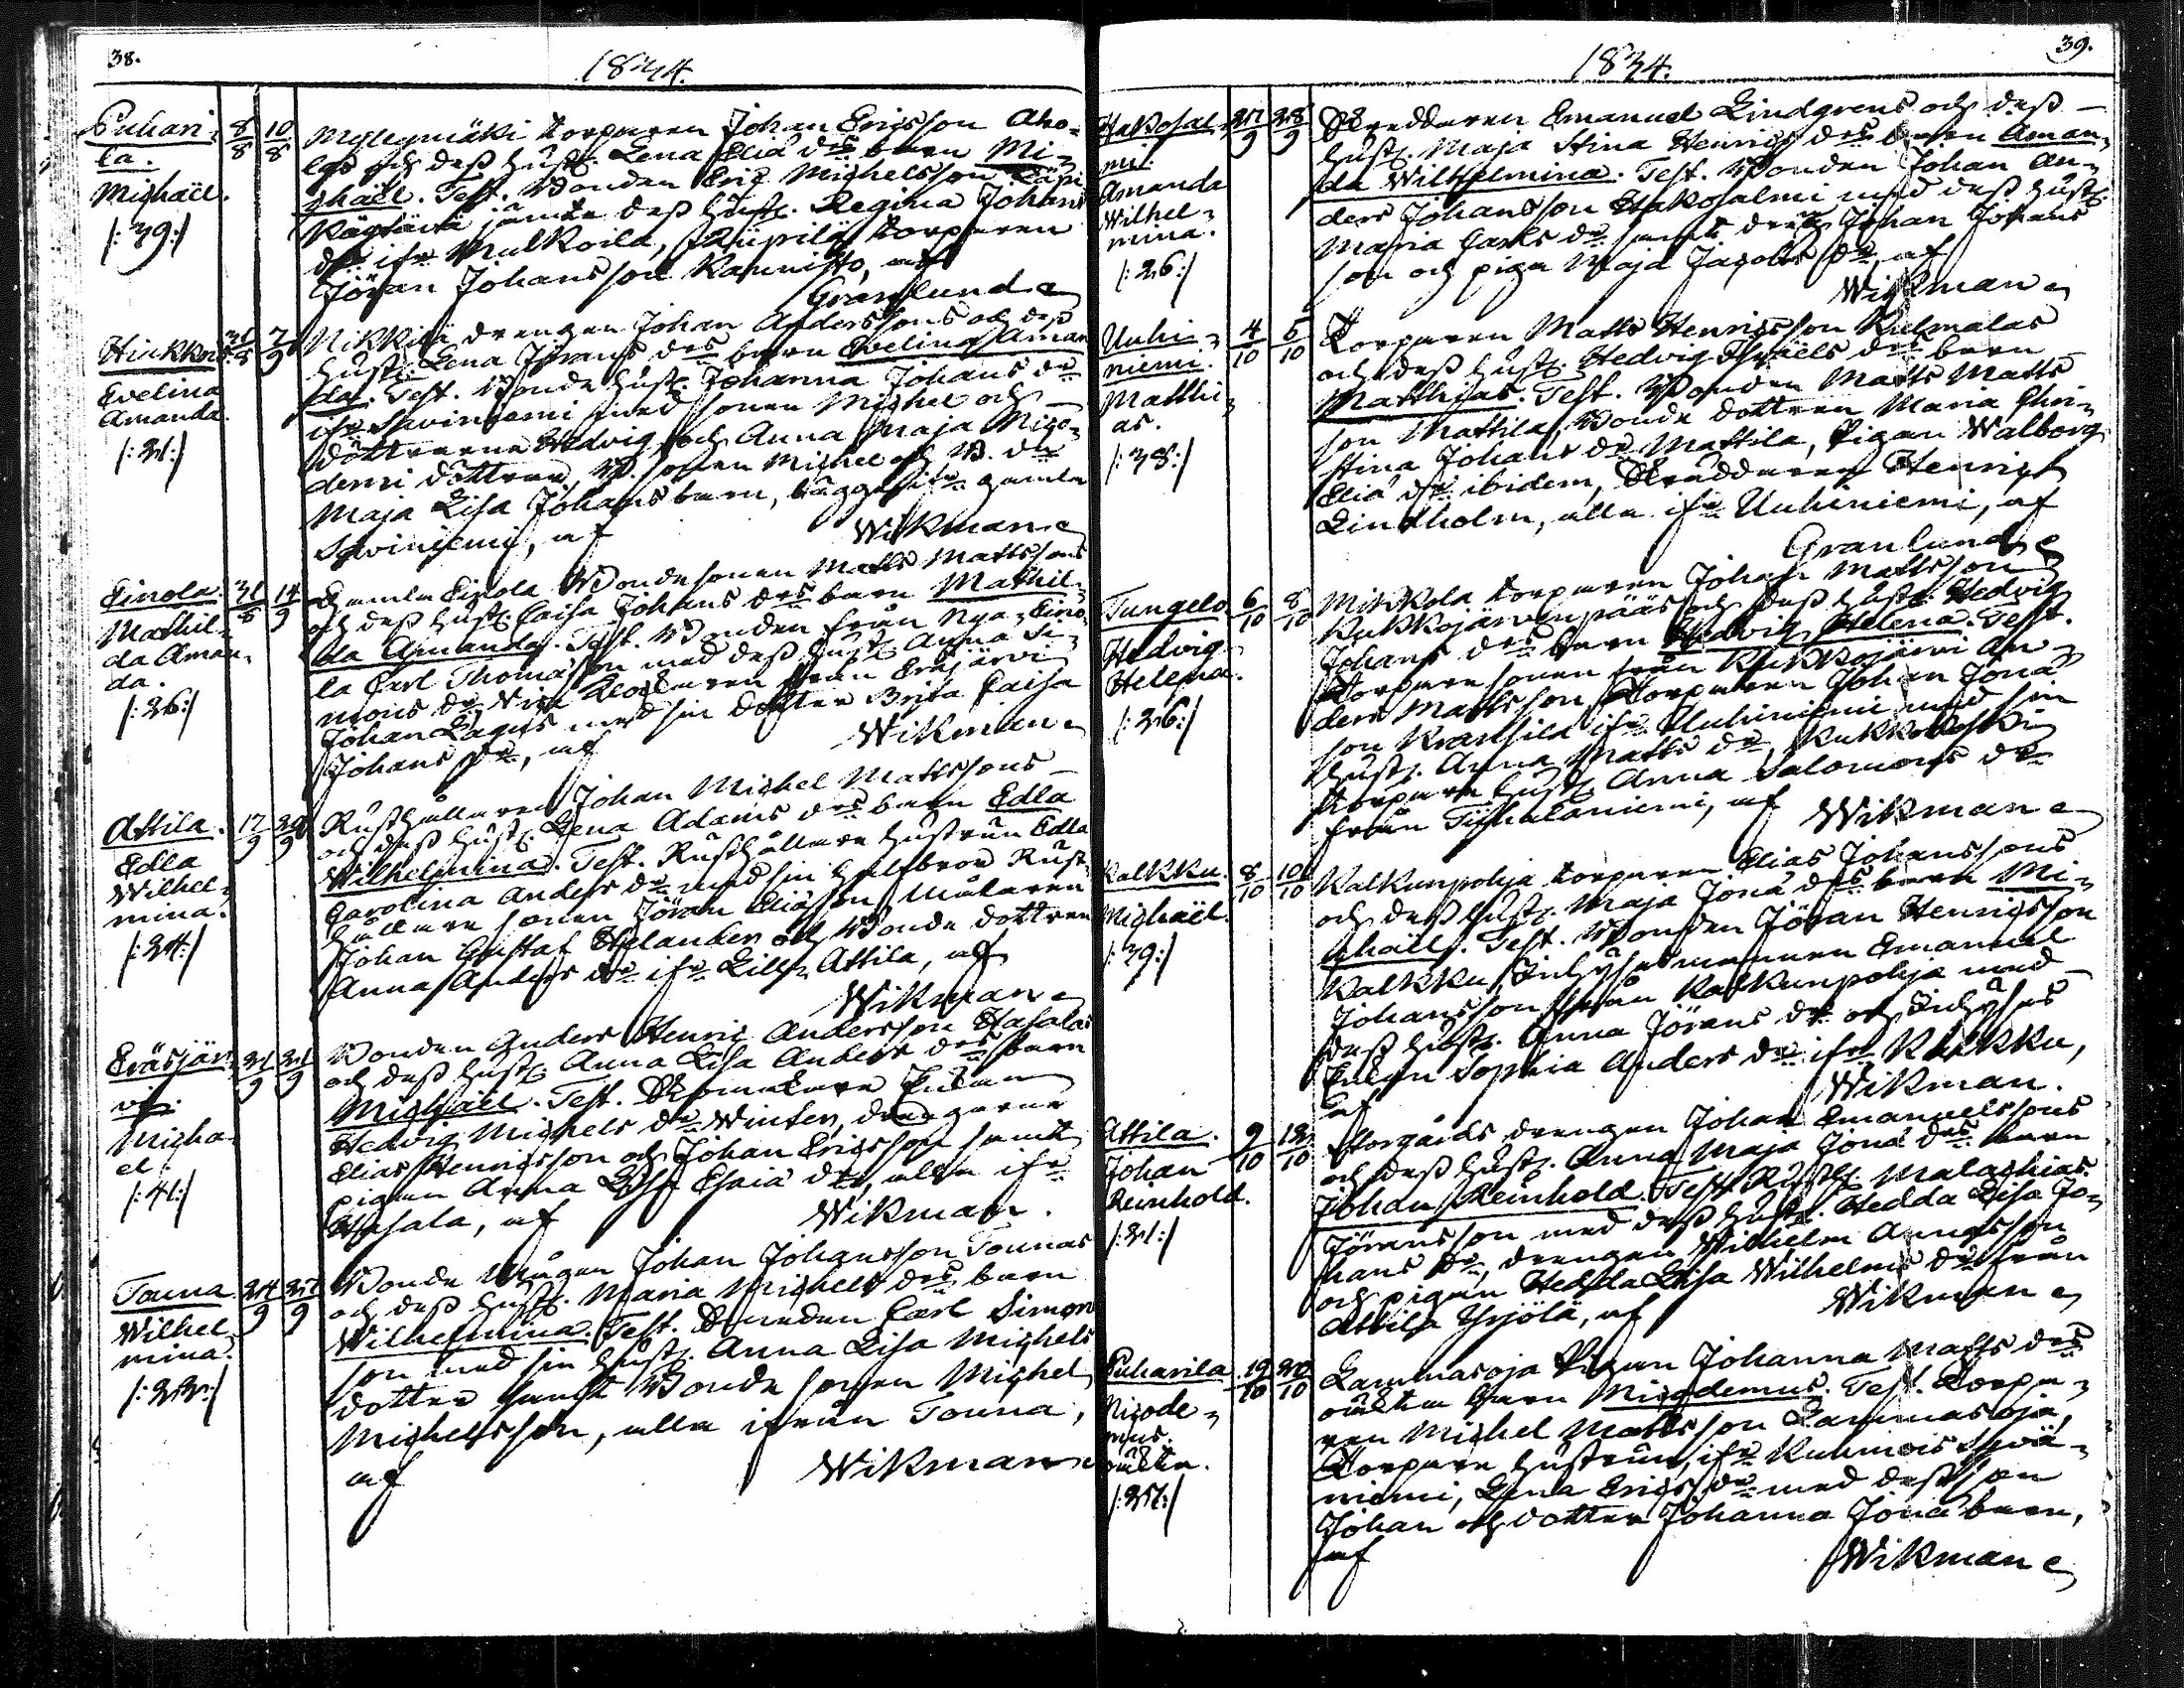 38.
1834.
Puhari-
la.
Michaël.
/:39:/
8/8 10/8
Myllymäki torparen Johan Ericsson Aho-
las och dess hust. Lena Eliæ drs barn Mi-
chaël. Test. Bonden Eric Michelsson
jämte dess hust. Regina Johans
dr ifr. Mulkoila, torparen
Jöran Johansson Kannisto, af
Granlund
Hirkkois.
Evelina
Amanda.
/:21:/
31/8 7/9
Nikkilä drengen Johan Anderssons och dess
hust. Lena Jörans drs barn Evelina Aman
da. Test. Bonde hust. Johanna Johans dr
ifr. Saviniemi med sonen Michel och
döttrarna Hedvig och Anna Maja Mico-
demi döttrar, B. sonen Michel och B. dr
Maja Lisa Johans barn, bägge ifr. gamla
Saviniemi, af
Wikman
Einola.
Mathil-
da Aman-
da.
/:26:/
31/8 14/9
Gamla Einola Bondesonen Matts Mattssons
och dess hust. Caisa Johans drs barn Mathil-
da Amanda. Test. Bonden från Nya-Eino-
la Carl Thomasson med dess hust. Anna Si-
mons dr, från Eräjärvi
Johan Lagus med sin dotter Brita Caisa
Johans dr, af
Wikman
Attila.
Edla
Wilhel-
mina.
/:24:/
17/9 20/9
Rusthållaren Johan Michel Mattssons
och dess hust. Lena Adams drs barn Edla
Wilhelmina. Test. Rusthållare hustrun Edla
Carolina Anders dr med sin halfbror Rust-
hållare sonen Jöran Eliæsson, Målaren
Johan Gustaf Helander och Bonde dottren
Anna Anders dr ifr. Lill-Attila, af
Wikman
Eräsjär-
vi.
Micha-
el.
/:41:/
21/9 21/9
Bonden Anders Henric Andersson Hasalas
och dess hust. Anna Lisa Anders drs barn
Michaël. Test. Skomakare Enkan
Hedvig Michels dr Winter, drengarne
Elias Henricsson och Johan Ericsson samt
pigan Anna Lisa Esaiæ dr, alla ifr.
Hasala, af
Wikman.
Touna.
Wilhel-
mina.
/:22:/
24/9 27/9
Bonde Mågen Johan Johansson Tounas
och dess hust. Maria Michels drs barn
Wilhelmina. Test. Bonden Carl Simon
son med sin hust. Anna Lisa Michels
dotter samt Bonde sonen Michel
Michelsson, alla ifrån Touna,
af
Wikman
39.
1834.
Hakosal-
mi.
Amanda
Wilhel-
mina.
/:26:/
27/9 28/9
Skreddaren Emanuel Lindgrens och dess
hust. Maja Stina Henrics drs barn Aman-
da Wilhelmina. Test. Bonden Johan An-
ders Johansson Hakosalmi med dess hust.
Maria Carls dr samt dreng Johan Johans
son och piga Maja Jacobs dr, af
Wikman
Uuhi-
niemi.
Matthi-
as.
/:38:/
4/10 5/10
Torparen Matts Henricsson Kulmalas
och dess hust. Hedvig Israëls drs barn
Matthias. Test. Bonden Matts Matts
son Mattila, Bonde dottren Maria Chri-
stina Johans dr Mattila, Pigan Walborg
Eliæ dr ibidem, Skräddaren Henrich
Lindholm, alla ifr. Uuhiniemi, af
Granlund
Tungelo.
Hedvig
Helena.
/:26:/
6/10 8/10
Mikkola torparen Johan Mattsson
Kukkojärvenpääs och dess hust. Hedvig
Johans drs barn Hedvig Helena. Test.
Torpare sonen från Kukkojärvi An-
ders Mattsson, Torparen Johan Jonæ
son Kransila ifr. Uuhiniemi med sin
hust. Anna Matts dr, Kukkokoski
torpare hust. Anna Salomons dr
från Tyhtäläniemi, af
Wikman
Kalkku.
Michaël.
/:39:/
8/10 10/10
Kalkunpohja torparen Elias Johanssons
och dess hust. Maja Jonæ drs barn Mi-
chaël. Test. Bonden Jöran Henricsson
Kalkku, Inhysesmannen Emanuel
Johansson från Kalkunpohja med
dess hust. Anna Jörans dr och Inhyses
Enkan Sophia Anders dr ifr. Kalkku,
af
Wikman.
Attila.
Johan
Reinhold.
/:21:/
9/10 12/10
Storgårds drengen Johan Emanuelssons
och dess hust. Anna Maja Jonæ drs barn
Johan Reinhold. Test. Rusth. Malachias
Jöransson med dess hust. Hedda Lisa Jo-
hans dr, drengen Wilhelm Annæsson
och pigan Hedda Lisa Wilhelms dr från
Attila Yrjölä, af
Wikman
Puharila.
Nicode-
mus.
oäkta.
/:27:/
19/10 20/10
Lammasoja Pigan Johanna Matts drs
oäkta barn Nicodemus. Test. Torpa-
ren Michel Mattsson Lammasoja,
Torpare hustrun, ifr. Kuhmois
niemi, Lena Erics dr med dess son
Johan och dotter Johanna Jonæ barn,
af
Wikman